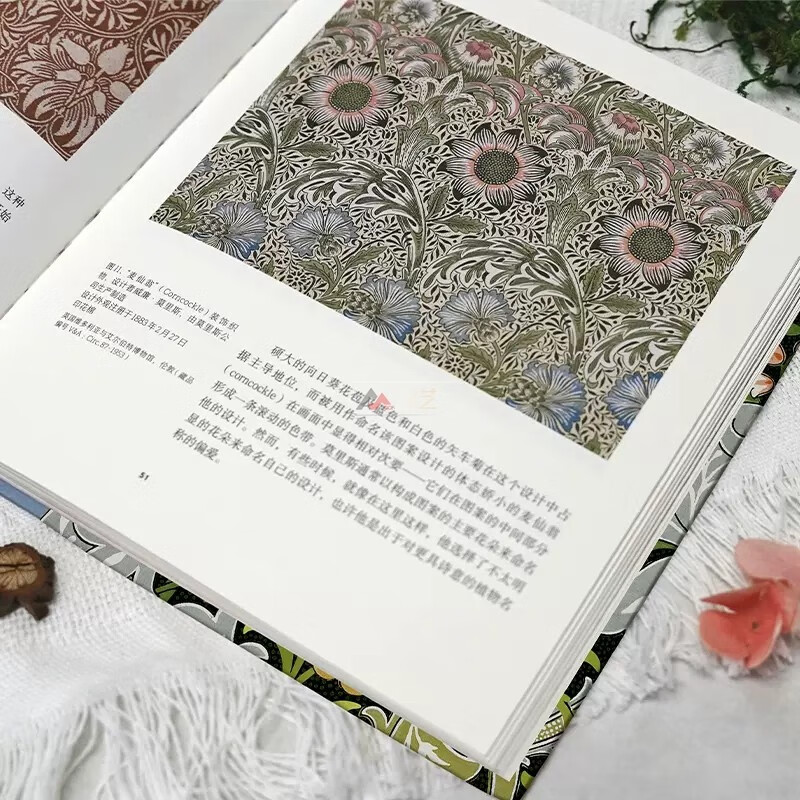 这种
开始
图11. “麦仙翁”(Corncockle)装饰织
物，设计者威廉·莫里斯；由莫里斯公
司生产制造
设计外观注册于1883年2月27日
印花棉
英国维多利亚与艾尔伯特博物馆，伦敦（藏品
编号V&A：Circ.87-1953）
硕大的向日葵花苞 蓝色和白色的矢车菊在这个设计中占
据主导地位，而被用作命名该图案设计的体态娇小的麦仙翁
(corncockle)在画面中显得相对次要——它们在图案的中间部分
形成一条滚动的色带。莫里斯通常以构成图案的主要花朵来命名
他的设计。然而，有些时候，就像在这里这样，他选择了不太明
显的花朵来命名自己的设计，也许他是出于对更具诗意的植物名
称的偏爱。
51